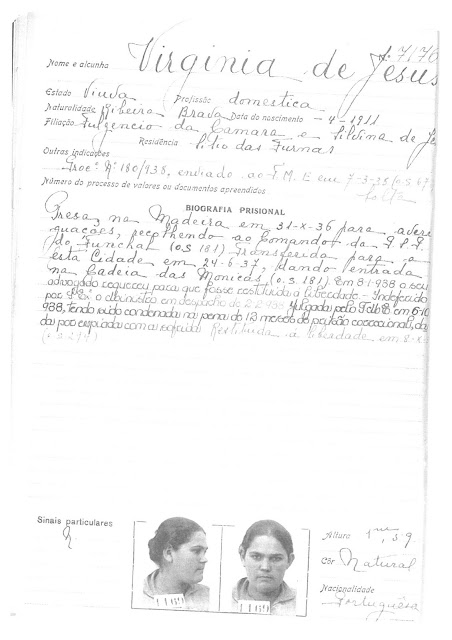 Nº 7170
Nome e alcunha Virginia de Jesus
Estado Viuva Profissão domestica
Naturalidade Ribeira Brava Data do nascimento -4-1911
Filiação Fulgencio da Camara e de Je
Residência Sitio das Furnas
Outras indicações
Proc. Nº 180/938, enviado ao T. M. E em 7-3-38
Número do processo de valores ou documentos apreendidos
BIOGRAFIA PRISIONAL
Presa, na Madeira em 31-X-36 para averi
guações, recolhendo ao Comando da P.S.P.
do Funchal (O.S 181) Transferida para
esta Cidade em 24-6-37, dando entrada
na Cadeia das Monicas (O.S. 181). Em 8-1-938 o seu
advogado requereu para que fosse restituida á liberdade. Indeferido
por em despacho de 2-2-938. Julgada pelo em
938, tendo sido condenada na pena de 12 meses de prisão correcional, da
da por expiada com a sofrida. Restituida á liberdade em
Sinais particulares
N
1169
1169
Altura
Côr Natural
Nacionalidade
Portuguêsa